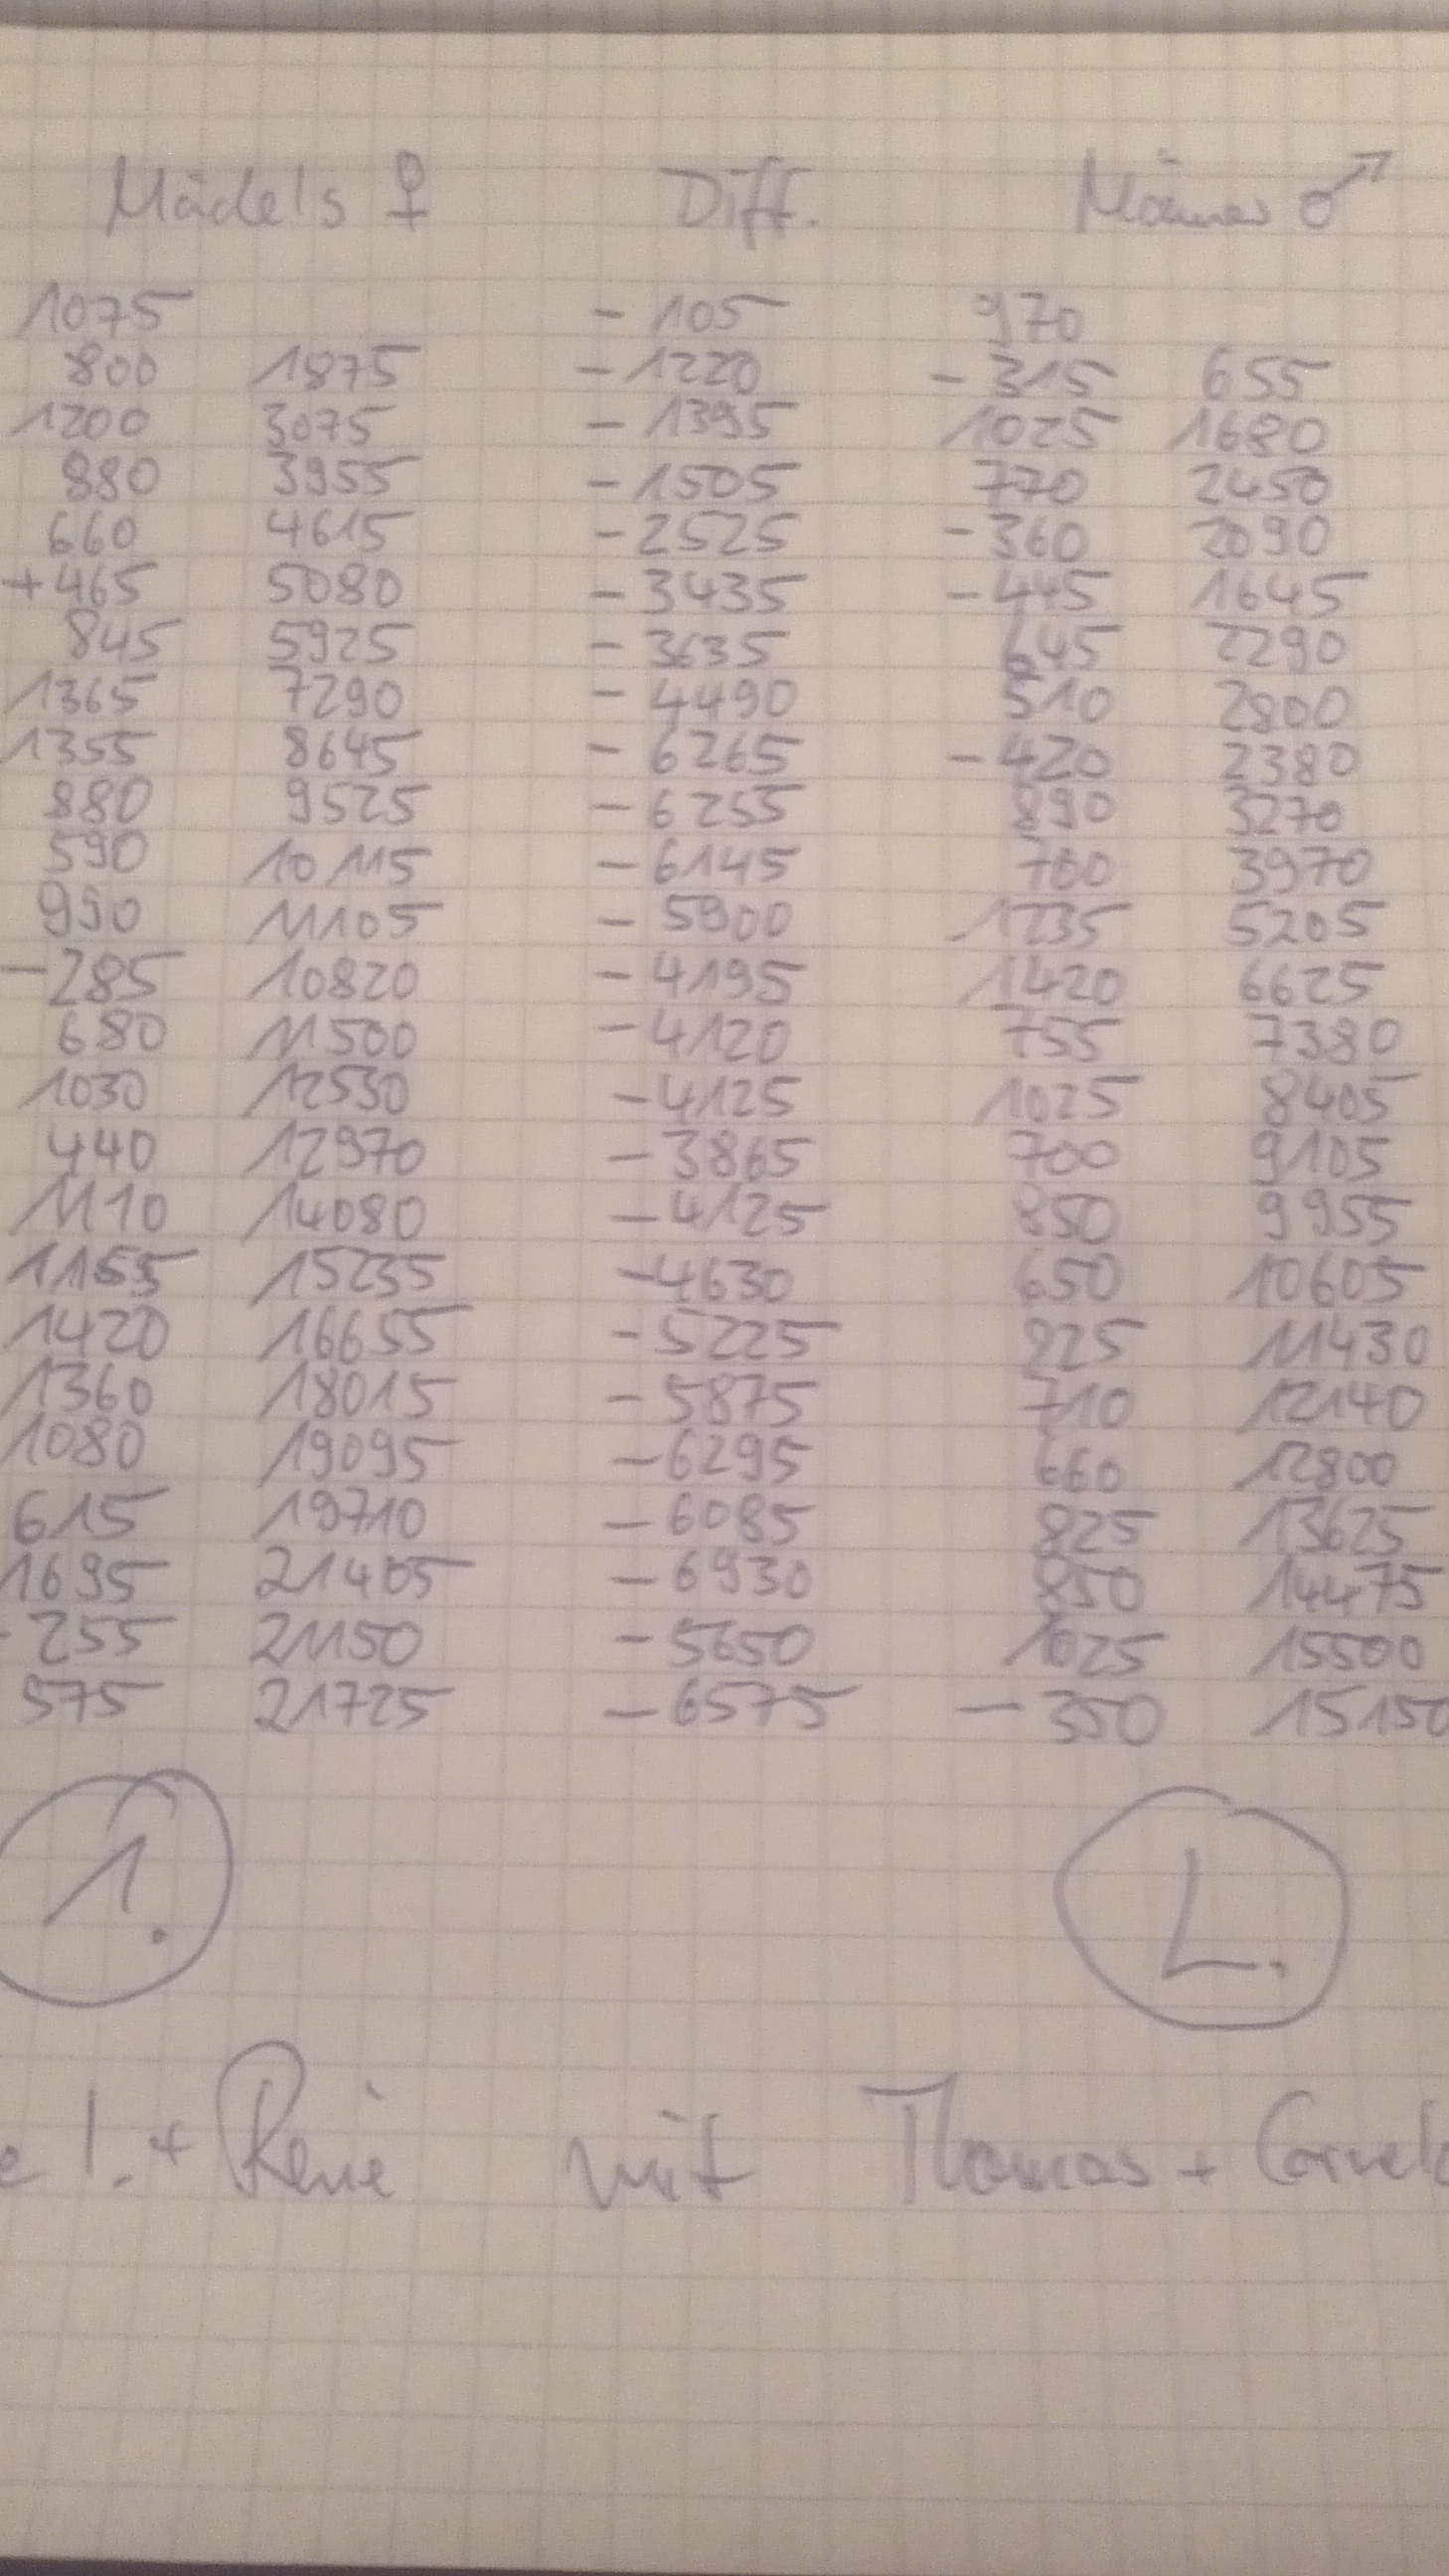 Mädels ♀ Diff. Männer ♂
1075 - 105 970
800 1875 - 1220 - 315 655
1200 3075 - 1395 1025 1680
880 3955 - 1505 770 2450
660 4615 - 2525 - 360 2090
+ 465 5080 - 3435 - 445 1645
845 5925 - 3635 645 2290
1365 7290 - 4490 510 2800
1355 8645 - 6265 - 420 2380
880 9525 - 6255 890 3270
590 10115 - 6145 700 3970
990 11105 - 5900 1235 5205
- 285 10820 - 4195 1420 6625
680 11500 - 4120 755 7380
1030 12530 - 4125 1025 8405
440 12970 - 3865 700 9105
1110 14080 - 4125 850 9955
1155 15235 - 4630 650 10605
1420 16655 - 5225 825 11430
1360 18015 - 5875 710 12140
1080 19095 - 6295 660 12800
615 19710 - 6085 825 13625
1695 21405 - 6930 850 14475
- 255 21150 - 5650 1025 15500
575 21725 - 6575 - 350 15150
1. L.
e I. + René mit Thomas +